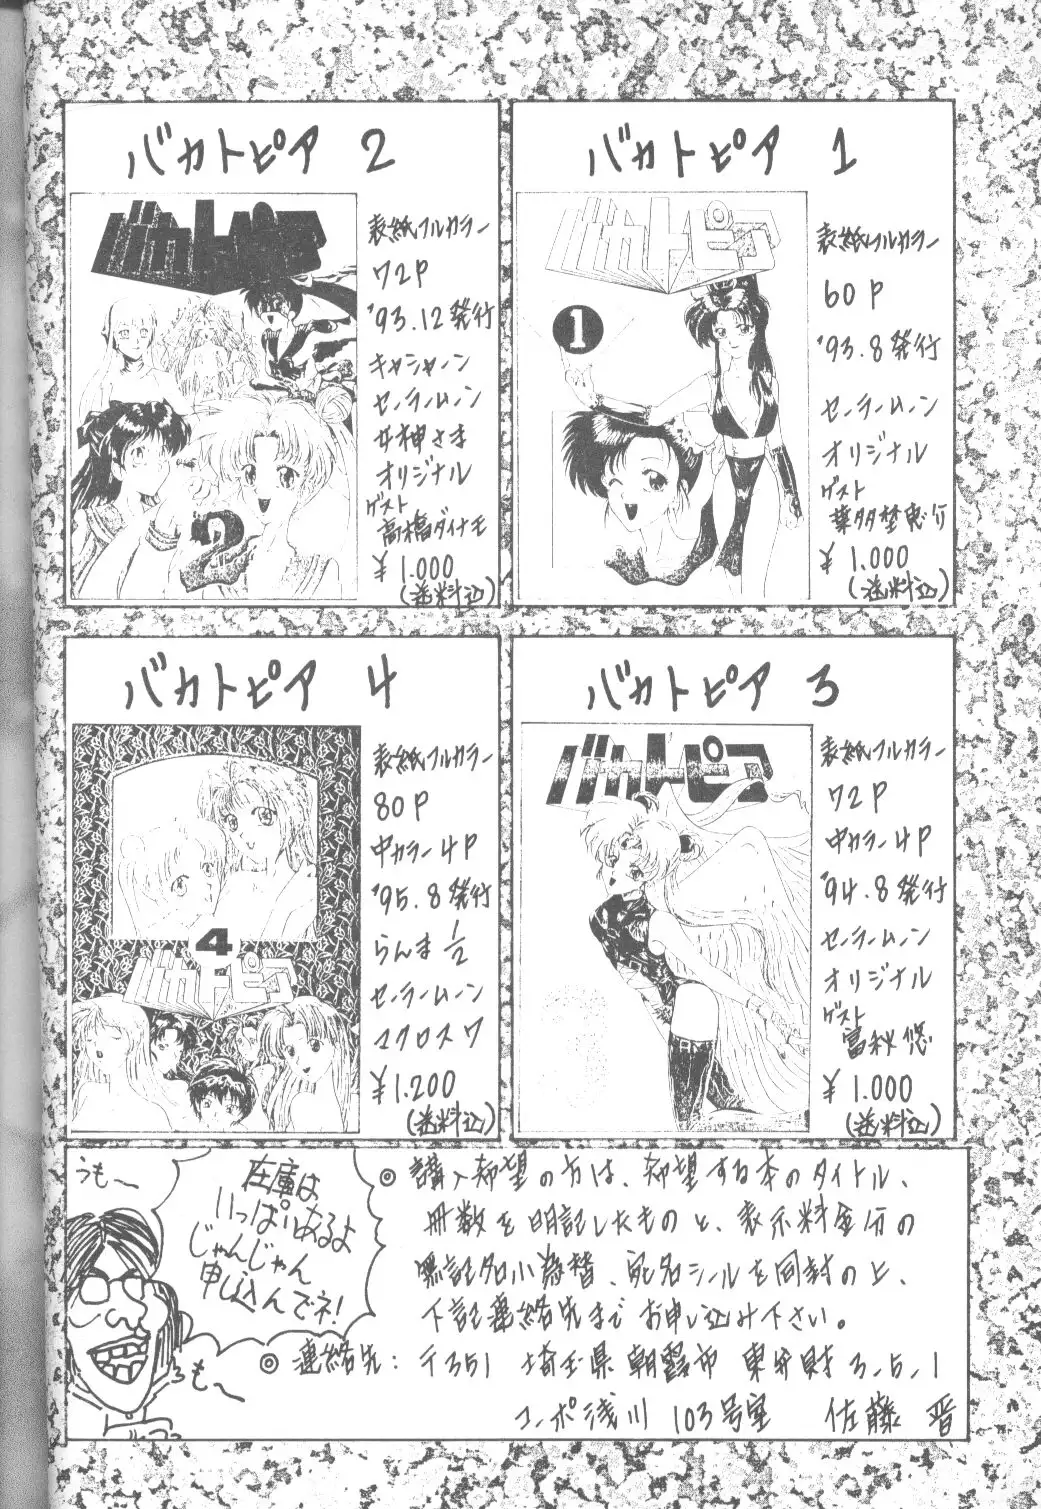 バカトピア 1
バカトピア
1
表紙フルカラー
60P
'93.8発行
セーラームーン
オリジナル
ゲスト
葉多埜恵介
¥1.000
(送料込)
バカトピア 2
バカトピア
2
表紙フルカラー
72P
'93.12発行
キャシャーン
セーラームーン
女神さま
オリジナル
ゲスト
高橋ダイナモ
¥1.000
(送料込)
バカトピア 3
バカトピア
表紙フルカラー
72P
中カラー4P
'94.8発行
セーラームーン
オリジナル
ゲスト
富秋悠
¥1.000
(送料込)
バカトピア 4
4
バカトピア
表紙フルカラー
80P
中カラー4P
'95.8発行
らんま1/2
セーラームーン
マクロス7
¥1.200
(送料込)
うも〜
在庫は
いっぱいあるよ
じゃんじゃん
申し込んでネ!
うも〜
◎ 購入希望の方は、希望する本のタイトル、
冊数を明記したものと、表示料金分の
無記名小為替、宛名シールを同封の上、
下記連絡先までお申し込み下さい。
◎ 連絡先:〒351 埼玉県朝霞市 東弁財 3-5-1
コーポ浅川 103号室 佐藤 晋